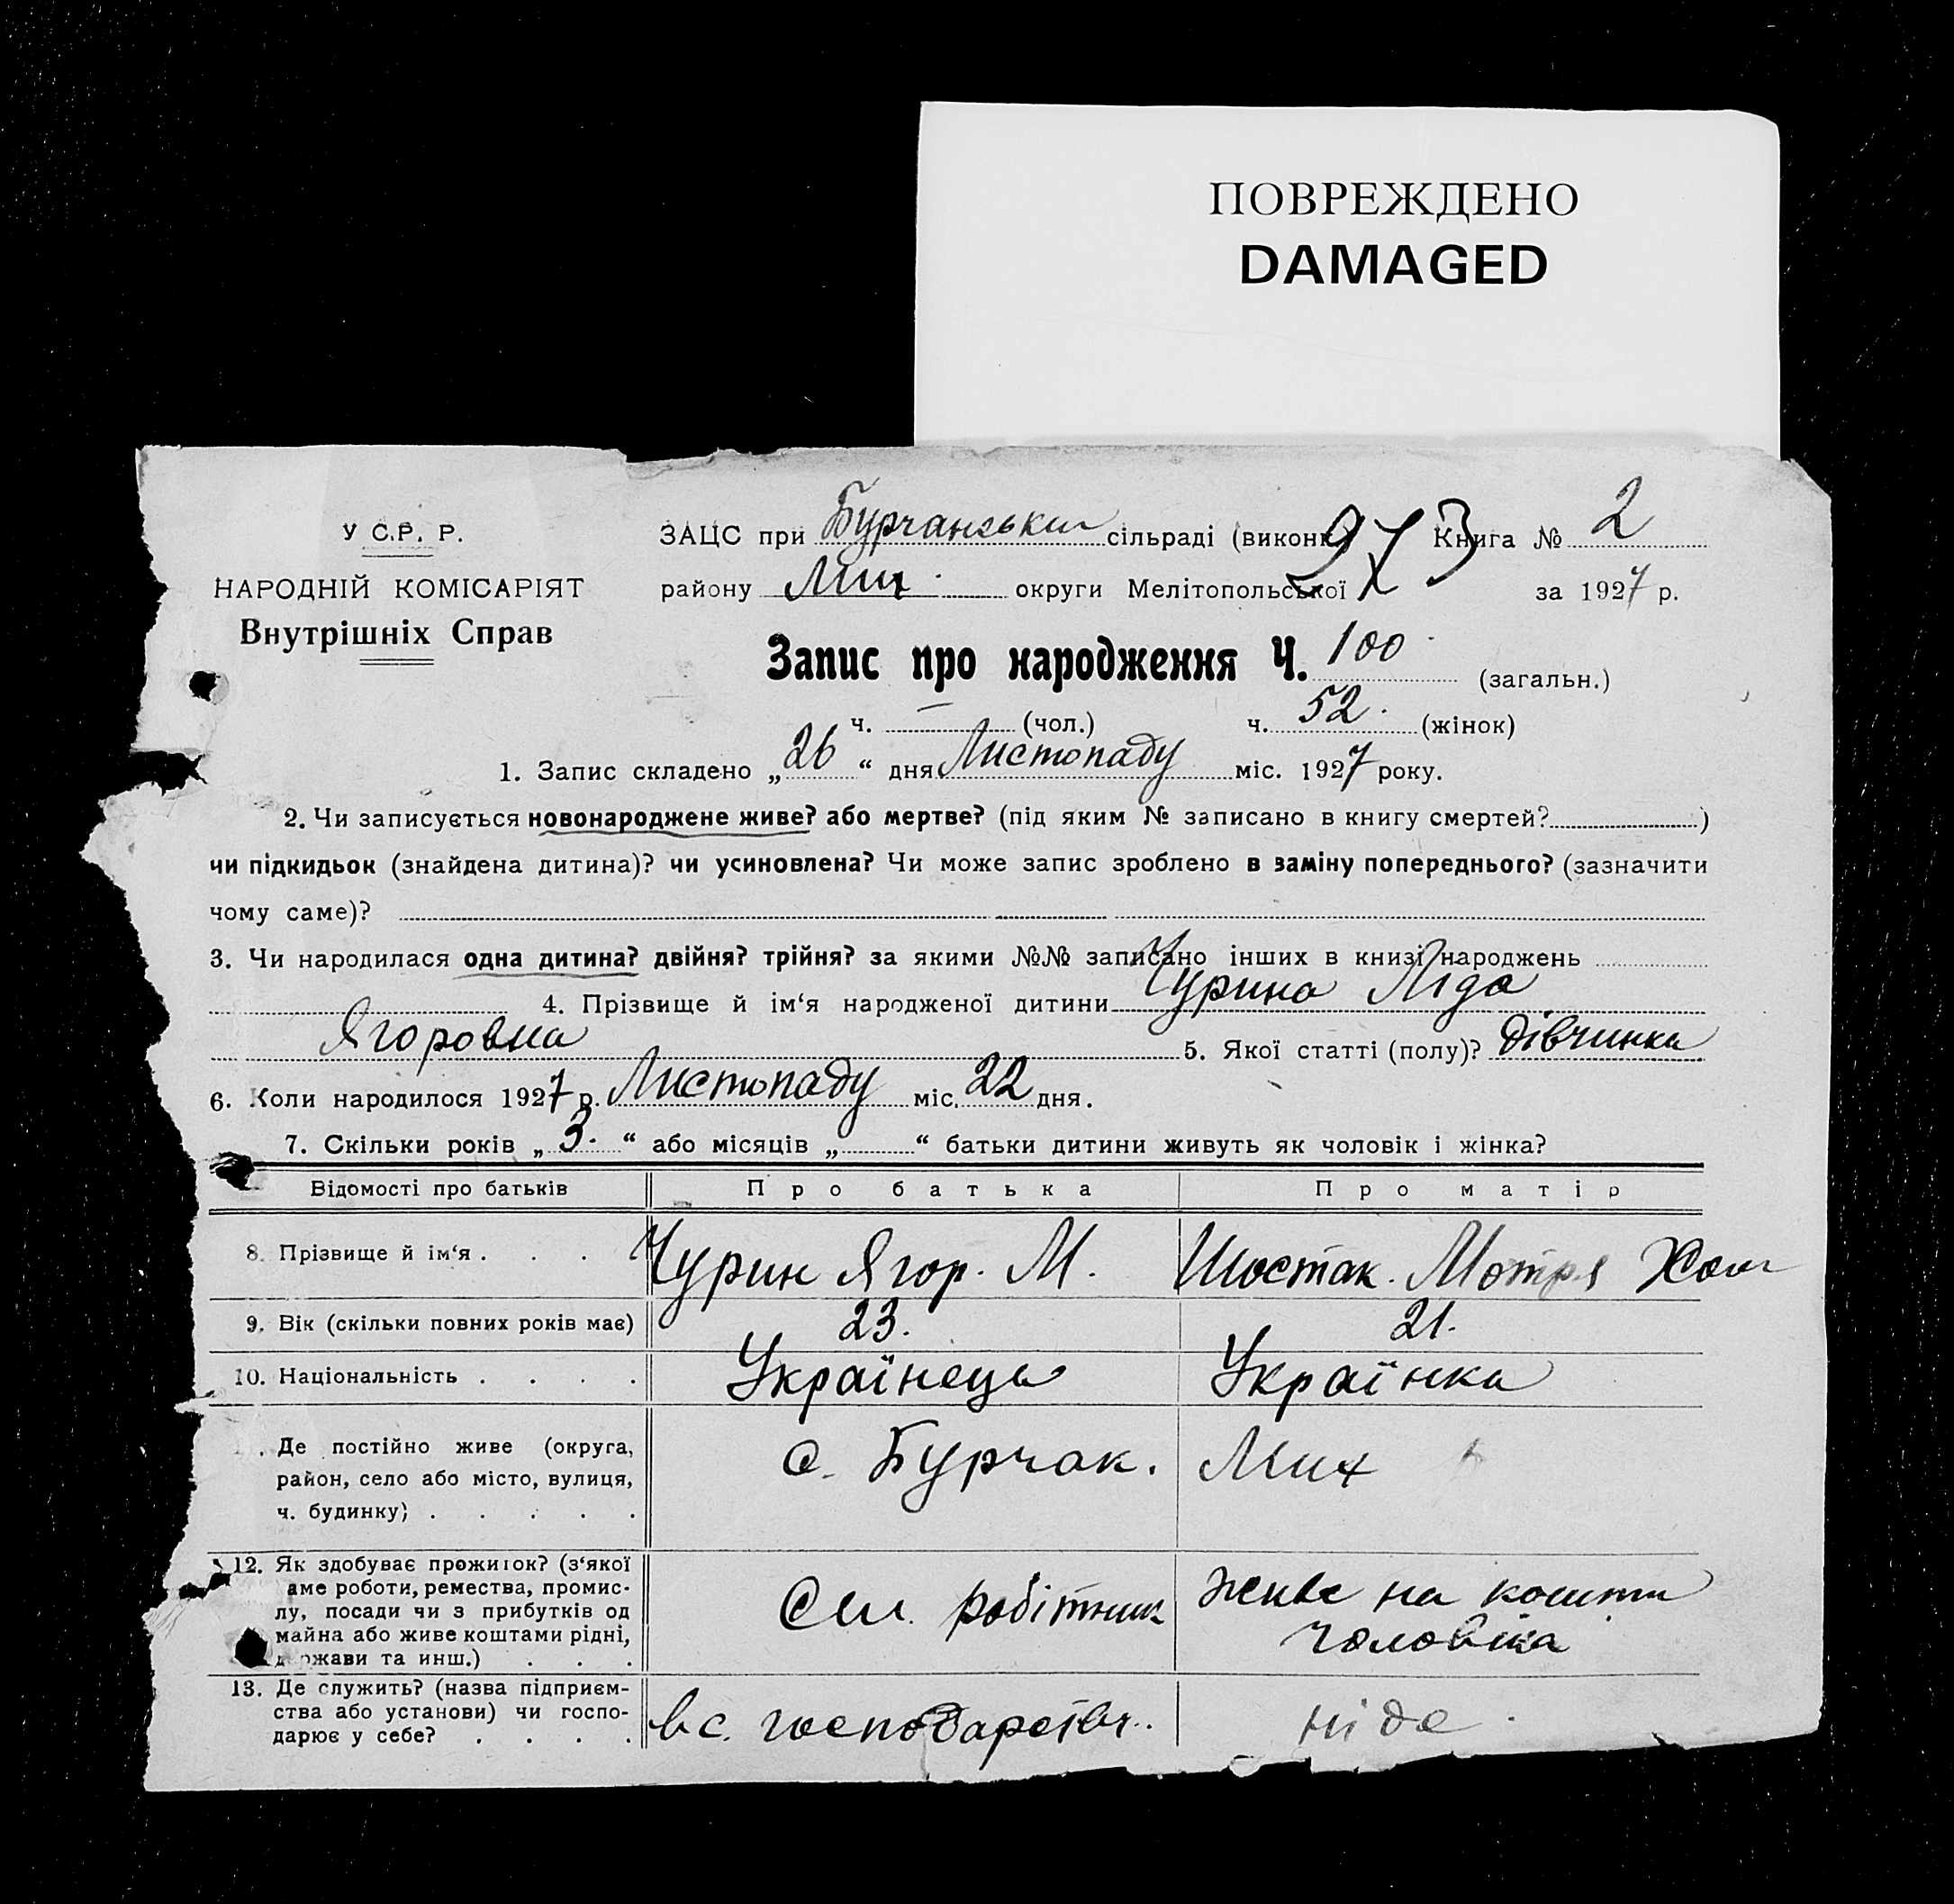 ПОВРЕЖДЕНО
DAMAGED
У С.Р. Р.
НАРОДНІЙ КОМІСАРІЯТ
Внутрішніх Справ
ЗАЦС при Бурчанськи сільраді (викон 973 Книга № 2
району Мих. округи Мелітопольської за 1927 р.
Запис про народження Ч. 100 (загальн.)
ч. — (чол.) ч. 52. (жінок)
1. Запис складено „ 26 “ дня Листопаду міс. 1927 року.
2. Чи записується новонароджене живе? або мертве? (під яким № записано в книгу смертей? )
чи підкидьок (знайдена дитина)? чи усиновлена? Чи може запис зроблено в заміну попереднього? (зазначити
чому саме)?
3. Чи народилася одна дитина? двійня? трійня? за якими №№ записано інших в книзі народжень
4. Прізвище й ім‘я народженої дитини Чурина Ліда
Ягоровна 5. Якої статті (полу)? Дівчинка
6. Коли народилося 1927 р. Листопаду міс. 22 дня.
7. Скільки років „ 3. “ або місяців „ “ батьки дитини живуть як чоловік і жінка?
Відомості про батьків Про батька Про матір
8. Прізвище й ім‘я . . . . Чурин Ягор. М. Шостак. Мотря Хом
9. Вік (скільки повних років має) 23. 21.
10. Національність . . . . Українець Українка
. Де постійно живе (округа, с. Бурчак. Мих
район, село або місто, вулиця,
ч. будинку) . . . . .
12. Як здобуває прожиток? (з‘якої
аме роботи, ремества, промис-
лу, посади чи з прибутків од Сел. робітник живе на кошти
майна або живе коштами рідні, чоловіка
держави та инш.) . . .
13. Де служить? (назва підприєм-
ства або установи) чи госпо- в с. господарстві. ніде.
дарює у себе? . . . .